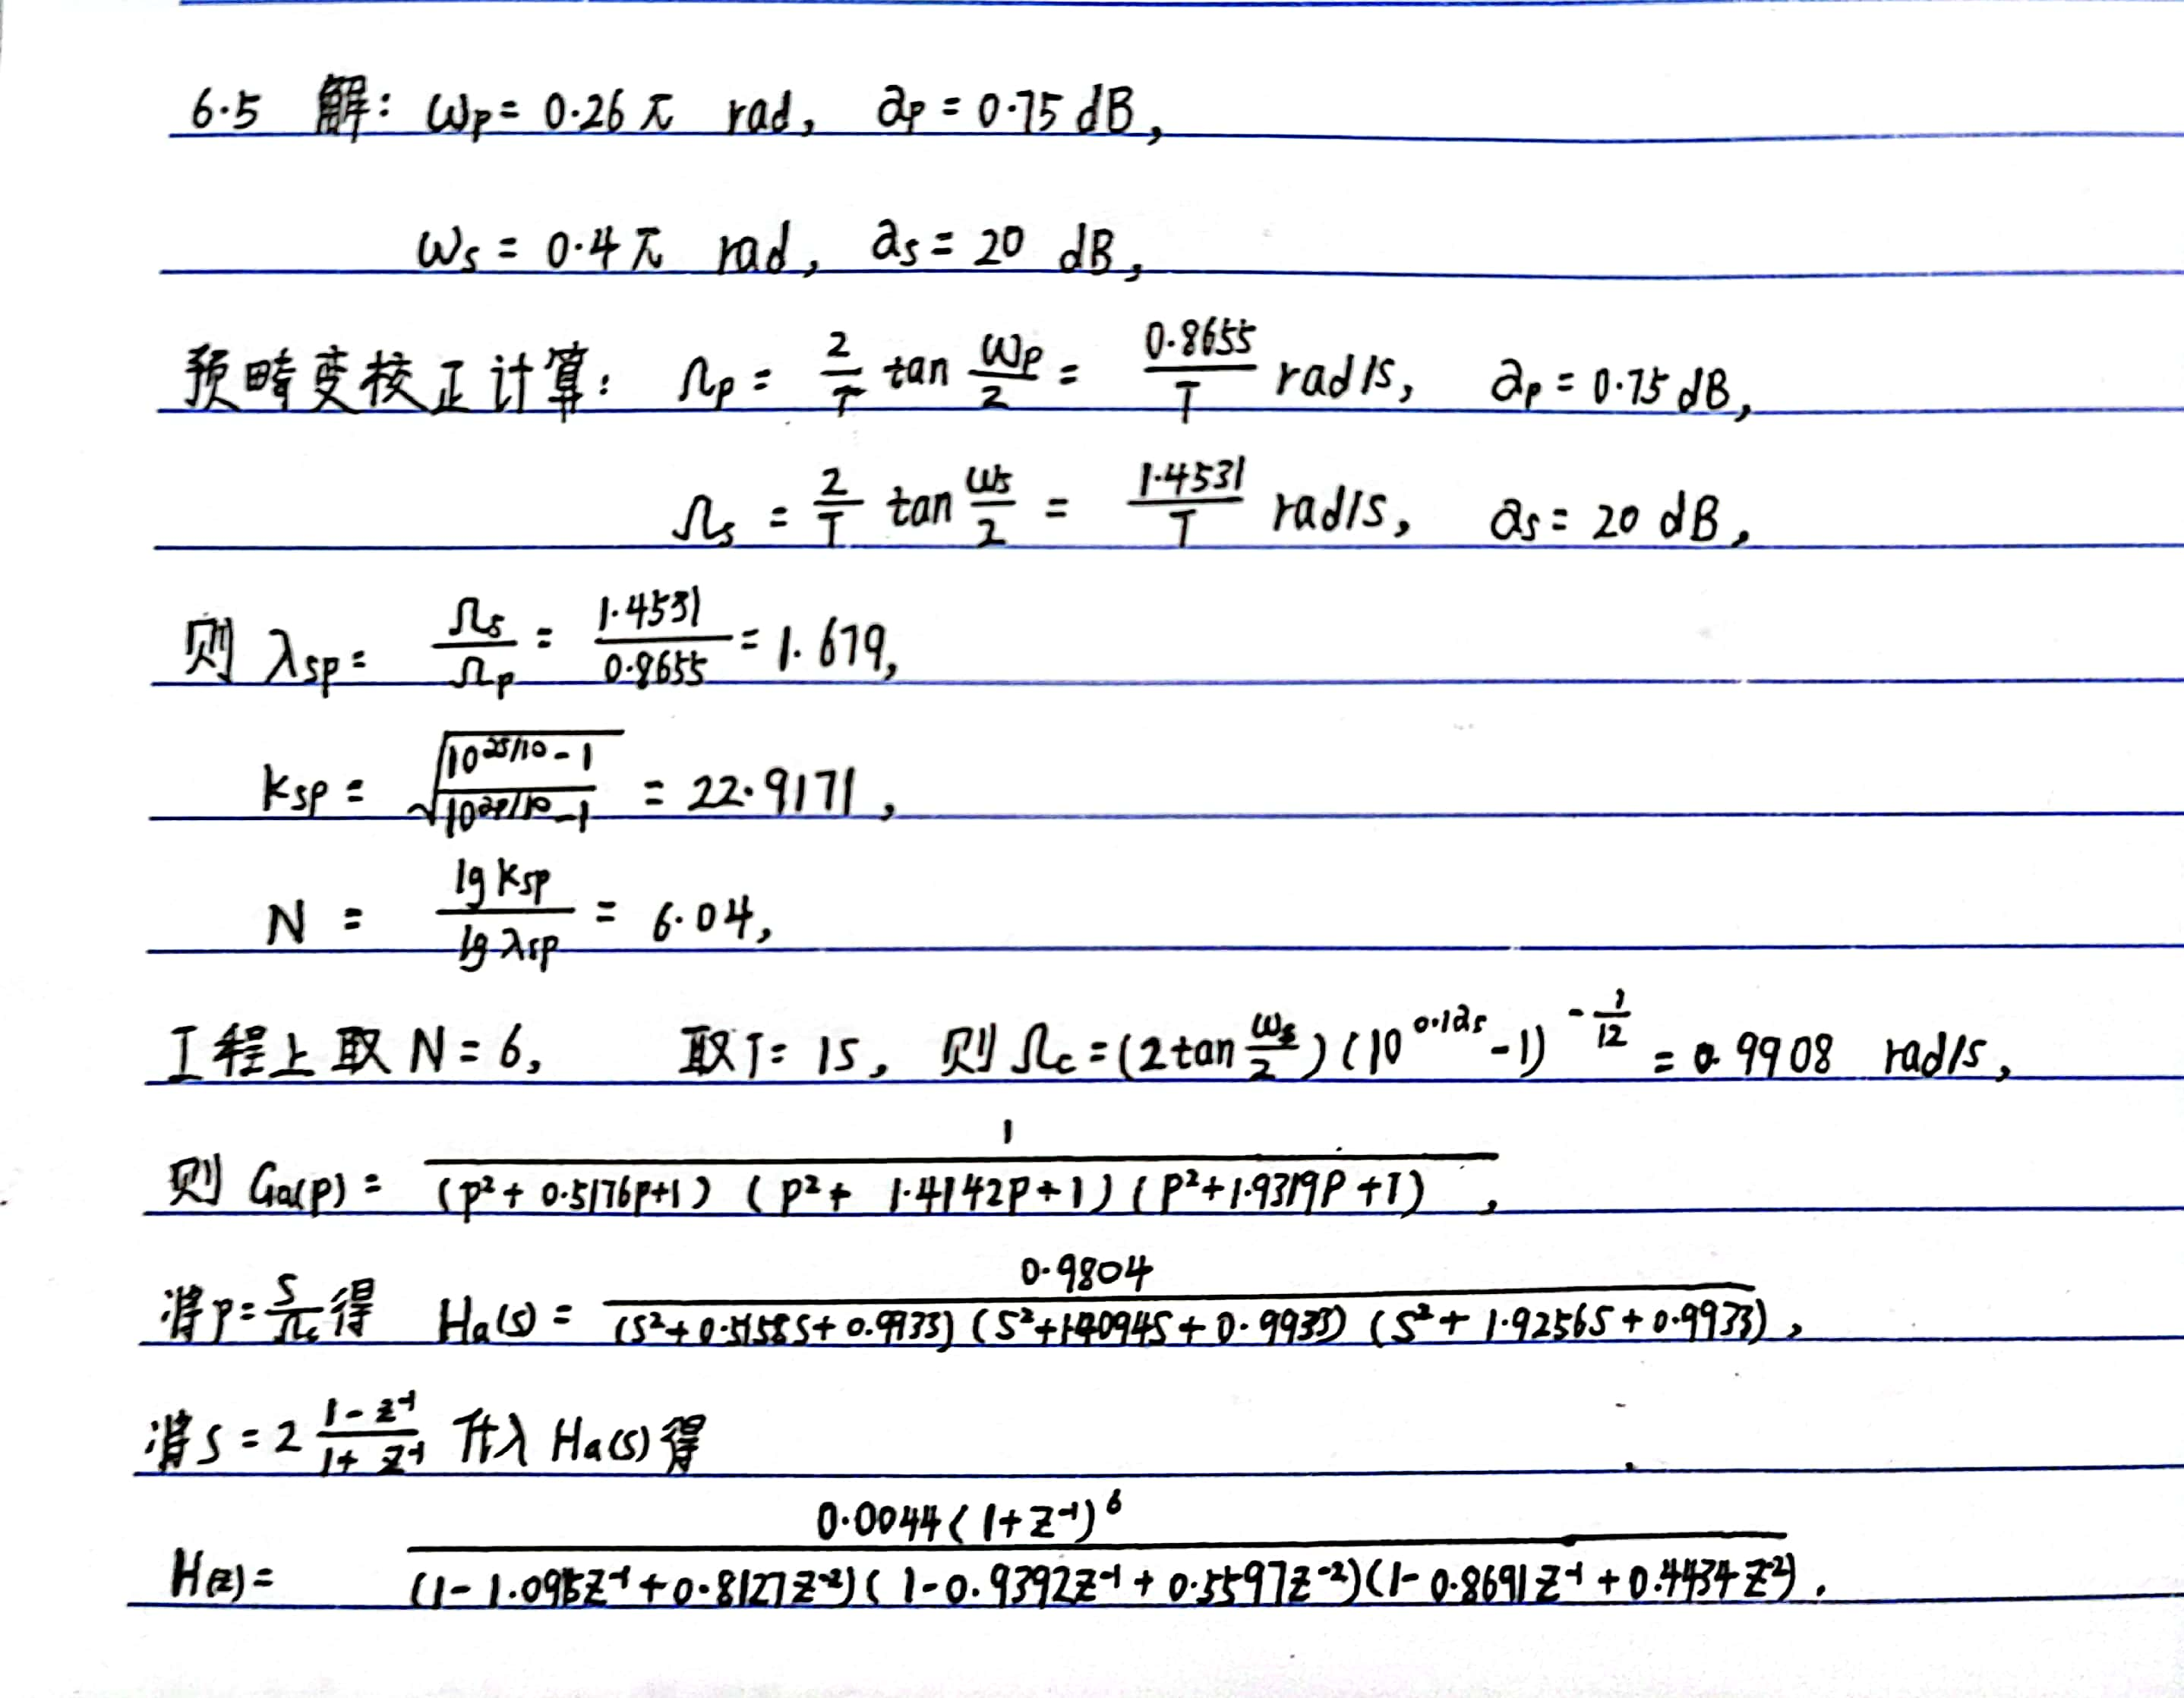 6.5 解: ωp = 0.26π rad, ap = 0.75 dB,
ωs = 0.4π rad, as = 20 dB,
预畸变校正计算: Ωp = 2/T tan ωp/2 = 0.8655/T rad/s, ap = 0.75 dB,
Ωs = 2/T tan ωs/2 = 1.4531/T rad/s, as = 20 dB,
则 λsp = Ωs/Ωp = 1.4531/0.8655 = 1.679,
ksp = √((10^(as/10) - 1)/(10^(ap/10) - 1)) = 22.9171,
N = lg ksp / lg λsp = 6.04,
工程上取 N = 6, 取T = 1s, 则 Ωc = (2 tan ωs/2)(10^(0.1as) - 1)^(-1/12) = 0.9908 rad/s,
则 Ga(p) = 1/((p²+0.5176p+1)(p²+1.4142p+1)(p²+1.9319p+1)),
将p = s/Ωc 得 Ha(s) = 0.9804/((s²+0.5158s+0.9933)(s²+1.4094s+0.9933)(s²+1.9256s+0.9933)),
将s = 2 (1-z⁻¹)/(1+z⁻¹) 代入 Ha(s) 得
H(z) = 0.0044(1+z⁻¹)⁶/((1-1.095z⁻¹+0.8127z⁻²)(1-0.9392z⁻¹+0.5597z⁻²)(1-0.8691z⁻¹+0.4434z⁻²)).